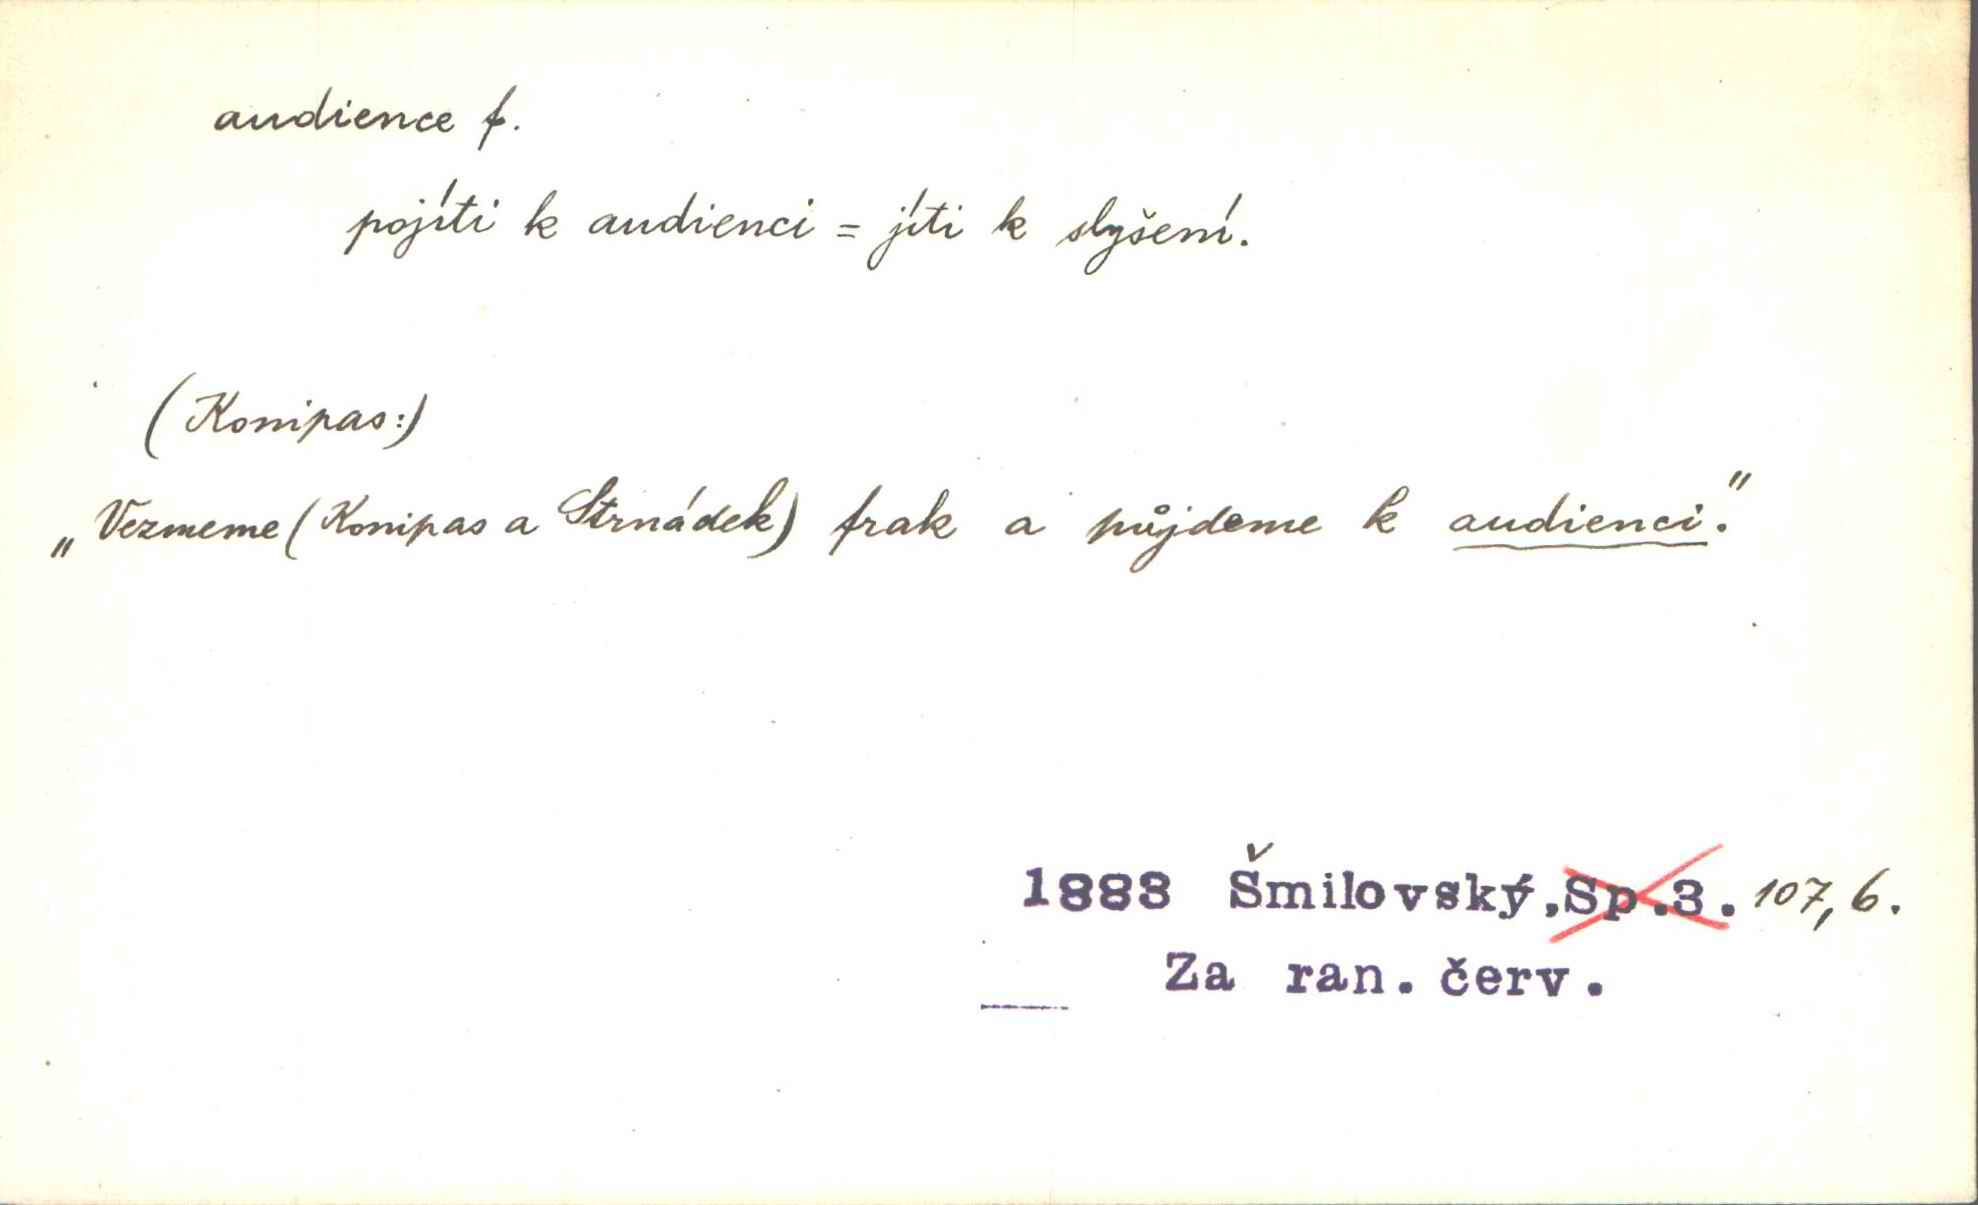 audience f.
pojíti k audienci = jíti k slyšení.
(Konipas:)
„Vezmeme (Konipas a Strnádek) frak a půjdeme k audienci."
1883 Šmilovský, Sp.3. 107, 6.
Za ran. červ.